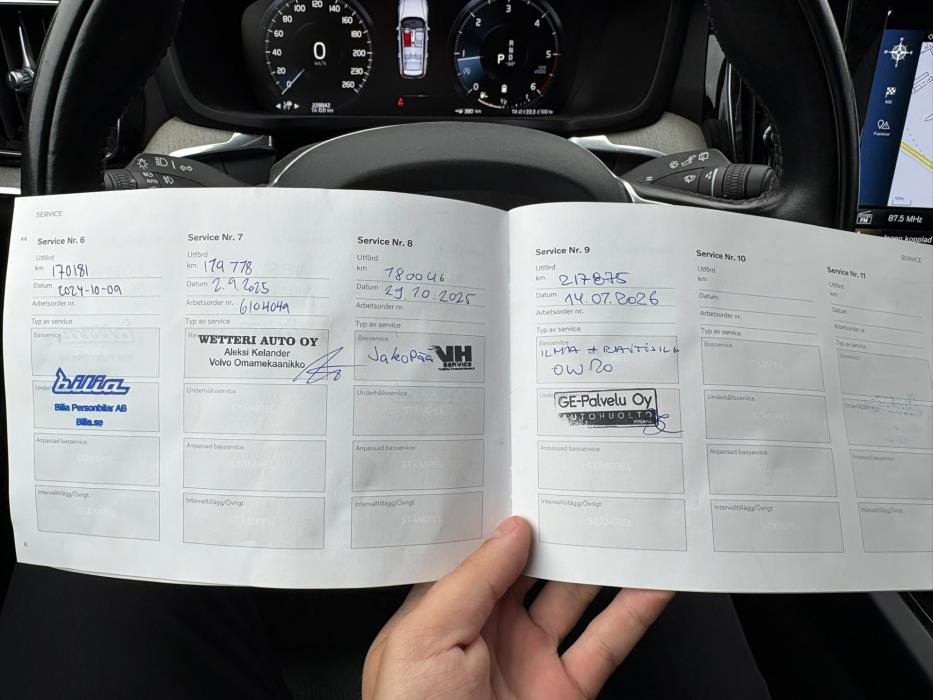 80 100 120 140
60 160
40 180
20 200
220
0
km/h
260
228842
TA 0.0 km
4
1 2 3 4 5 6
R
N
D
P
380 km
FM 87.5 MHz
SERVICE
Service Nr. 6
Utförd
km 170181
Datum 2024-10-09
Arbetsorder nr.
Typ av service
Basservice
bilia
Bilia Personbilar AB
Bilia.se
Anpassad basservice
STÄMPEL
Intervalltillägg/Övrigt
STÄMPEL
Service Nr. 7
Utförd
km 179 778
Datum 2.9.2025
Arbetsorder nr. 6104049
Typ av service
WETTERI AUTO OY
Aleksi Kelander
Volvo Omamekaanikko
Underhållsservice
STÄMPEL
Anpassad basservice
STÄMPEL
Intervalltillägg/Övrigt
STÄMPEL
Service Nr. 8
Utförd
km 180046
Datum 29.10.2025
Arbetsorder nr.
Typ av service
Basservice
Jakopää VH
SERVICE
Underhållsservice
STÄMPEL
Anpassad basservice
STÄMPEL
Intervalltillägg/Övrigt
STÄMPEL
Service Nr. 9
Utförd
km 217875
Datum 14.07.2026
Arbetsorder nr.
Typ av service
ILMA + RAITISILM
0W20
GE-Palvelu Oy
AUTOHUOLTO
Anpassad basservice
STÄMPEL
Intervalltillägg/Övrigt
STÄMPEL
Service Nr. 10
Utförd
km
Datum
Arbetsorder nr.
Typ av service
Basservice
STÄMPEL
Underhållsservice
STÄMPEL
Anpassad basservice
STÄMPEL
Intervalltillägg/Övrigt
STÄMPEL
SERVICE
Service Nr. 11
Utförd
km
Datum
Arbetsorder nr.
Typ av service
Basservice
Underhållsservice
Anpassad basservice
Intervalltillägg/Övrigt